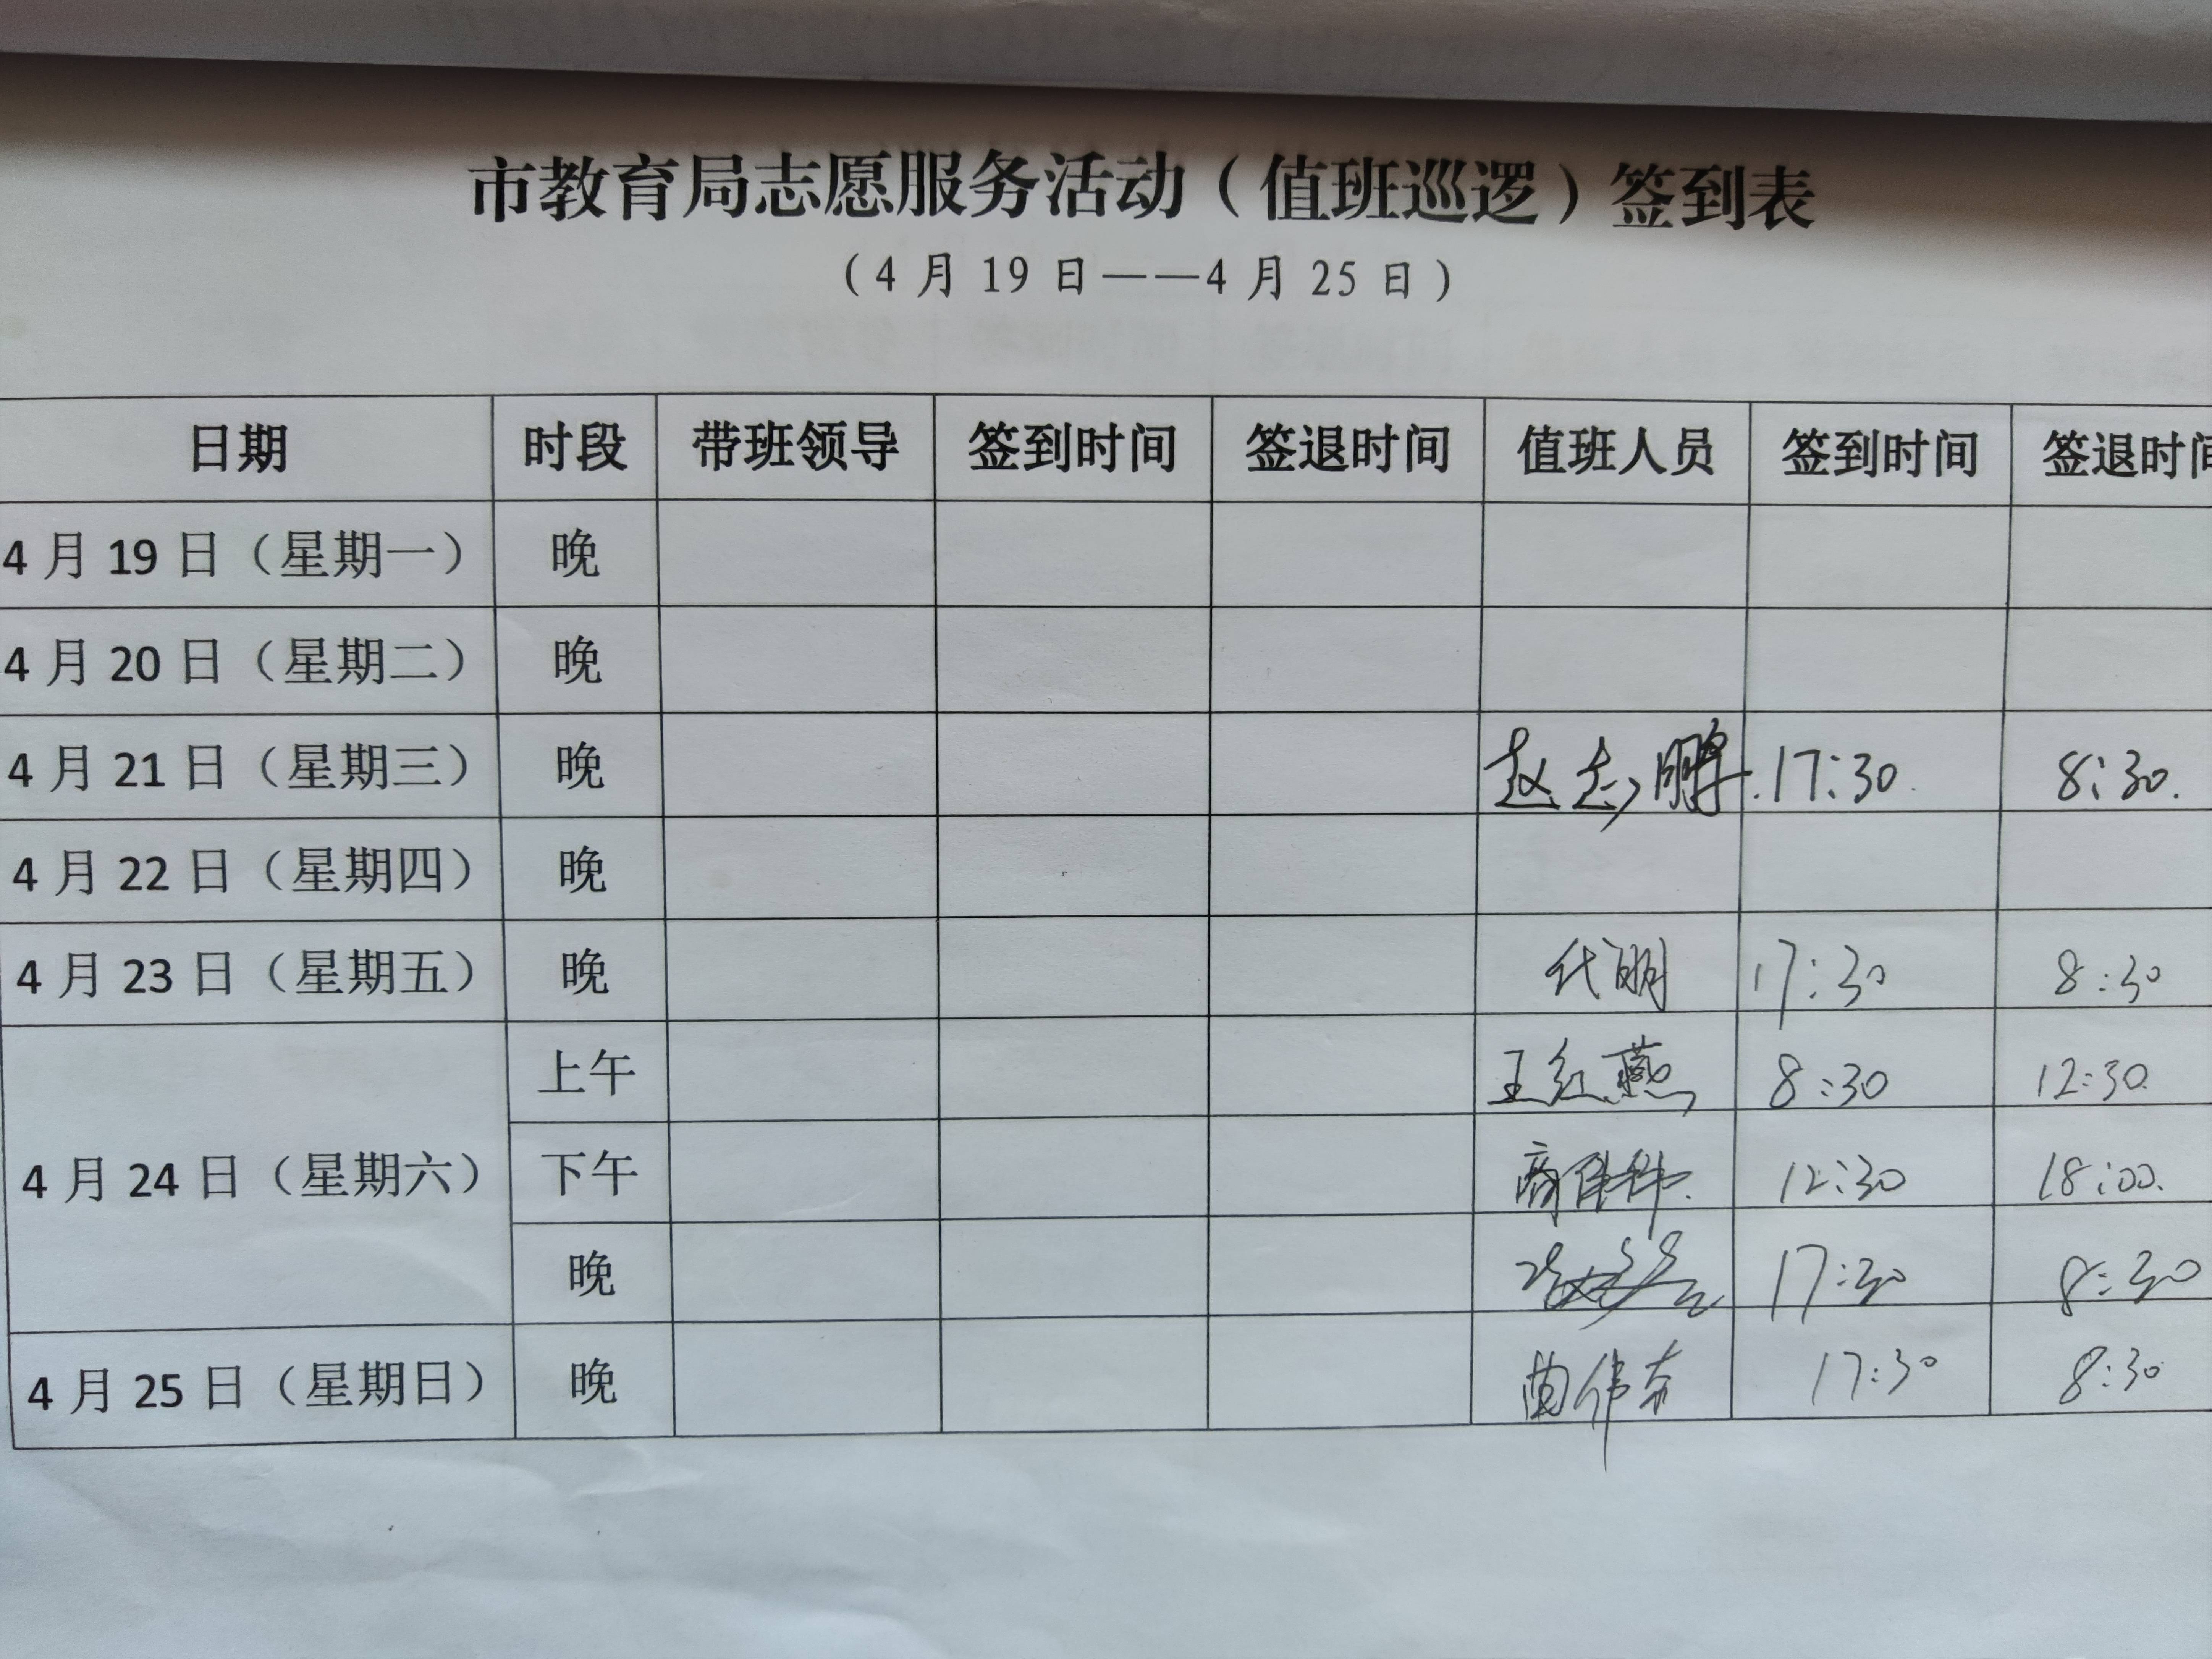 市教育局志愿服务活动（值班巡逻）签到表
（4 月 19 日——4 月 25 日）
日期 时段 带班领导 签到时间 签退时间 值班人员 签到时间 签退时间
4 月 19 日（星期一） 晚
4 月 20 日（星期二） 晚
4 月 21 日（星期三） 晚 赵志鹏 17:30. 8:30.
4 月 22 日（星期四） 晚
4 月 23 日（星期五） 晚 代明 17:30 8:30
4 月 24 日（星期六） 上午 王红燕 8:30 12:30.
下午 12:30 18:00.
晚 17:30 8:30
4 月 25 日（星期日） 晚 曲伟东 17:30 8:30